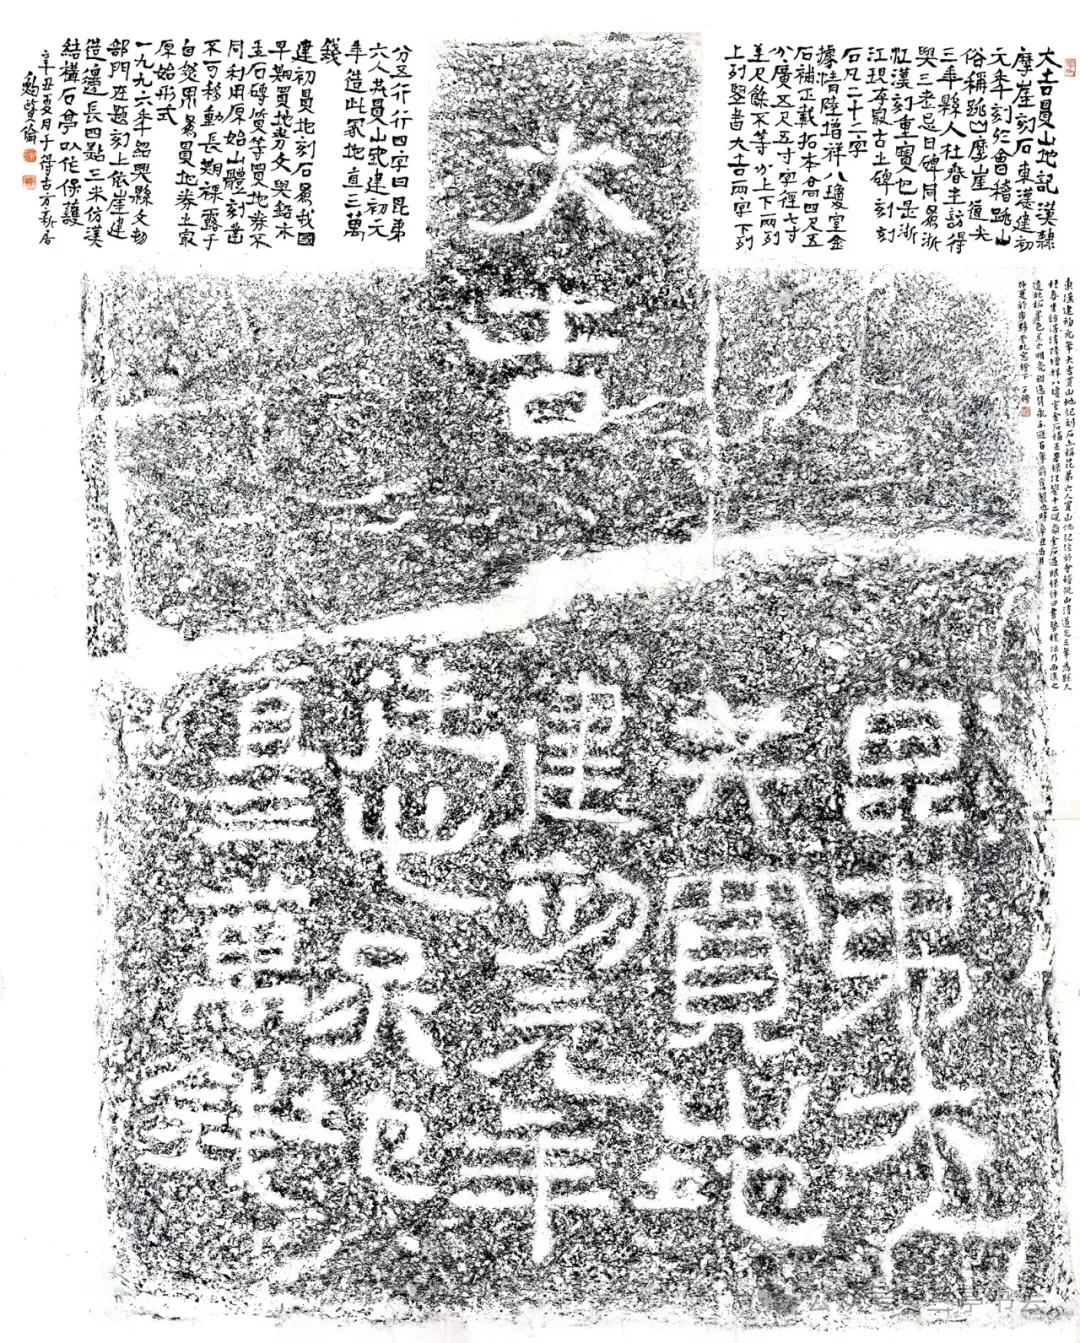 大吉買山地記漢隸
摩崖刻石東漢建初
元年刻於會稽跳山
俗稱跳山摩崖道光
三年縣人杜春生訪得
與三老忌日碑同為浙
江漢刻重寶也是浙
江現存最古土碑刻刻
石凡二十二字
據清陸增祥八瓊室金
石補正載拓本高四尺五
分廣五尺五寸字徑七寸
至尺餘不等分上下兩列
上列豎書大吉兩字下列
分五行行四字曰昆弟
六人共買山地建初元
年造此冢地直三萬
錢
建初買地刻石為我國
早期買地券文與鉛木
玉石磚質等買地券不
同利用原始山體刻鑿
不可移動長期裸露于
自然界為買地券之最
原始形式
一九九六年紹興縣文物
部門在題刻上依崖建
造邊長四點三米仿漢
結構石亭以作保護
辛丑夏月于得古方新居
東漢建初元年大吉買山地記刻石亦稱昆弟六人買山地記位於會稽跳山清道光三年為縣人
杜春生訪得清陸增祥八瓊室金石補正著錄
大吉
昆弟六人
共買山地
建初元年
造此冢地
直三萬錢